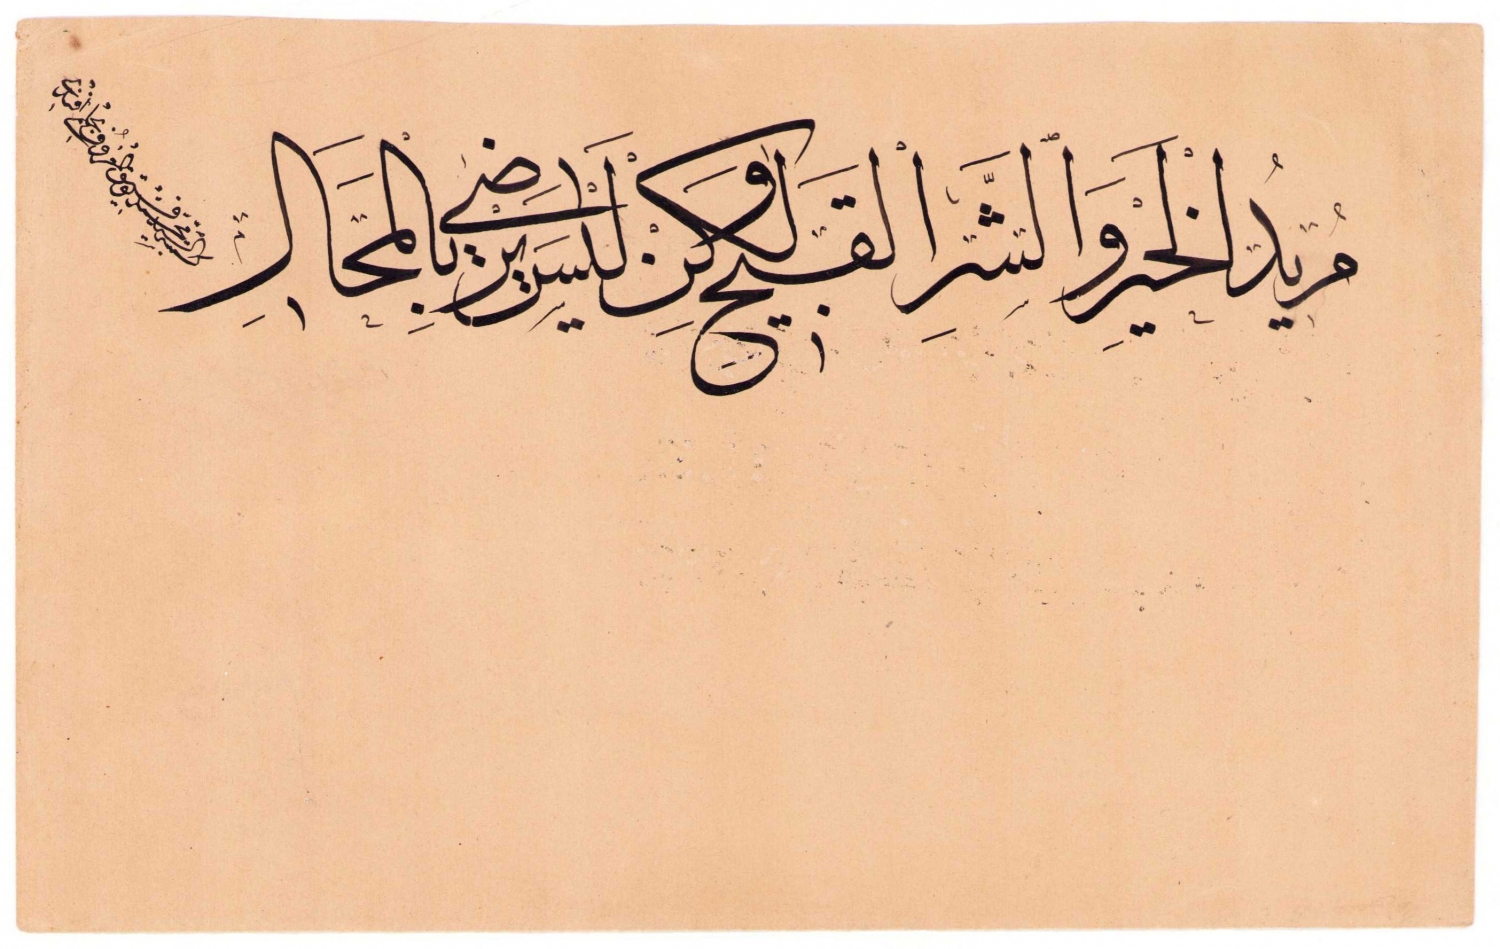 مُرِيدُ الْخَيْرِ وَالشَّرِّ الْقَبِيحِ وَلَكِنْ لَيْسَ يَرْضَى بِالْمُحَالِ